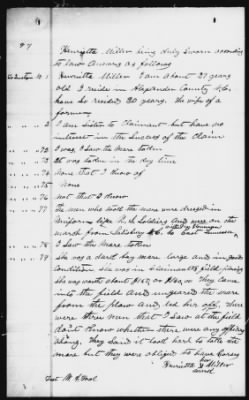 97
Henrietta Miller being duly Sworn according
to law Answers as follows
Question No 1 Henrietta Miller I am about 27 years
old I reside in County N.C.
have so resided 20 years. the wife of a
farmer
" " 2 I am sister to Claimant but have no
interest in the success of the Claim
" " 72 I was, I saw the mare taken
" " 73 It was taken in the day time
" " 74 None that I know of
" " 75 None
" " 76 not that I know
" " 77 The men who took the mare were dressed in
uniform like U.S. Soldiers and were on the
march from Salisbury N.C. to East Tennessee
" " 78 I saw the mare taken
" " 79 She was a dark bay mare large and in good
condition she was in claimants field plowing
she was worth about They came
into the field and ungeared the mare
from the plow and led her off, there
were three men that I saw at the field
don't know whether there were any officers
along, they said it look hard to take the
mare but they were obliged to have horses
her
Henrietta X Miller
mark
Test